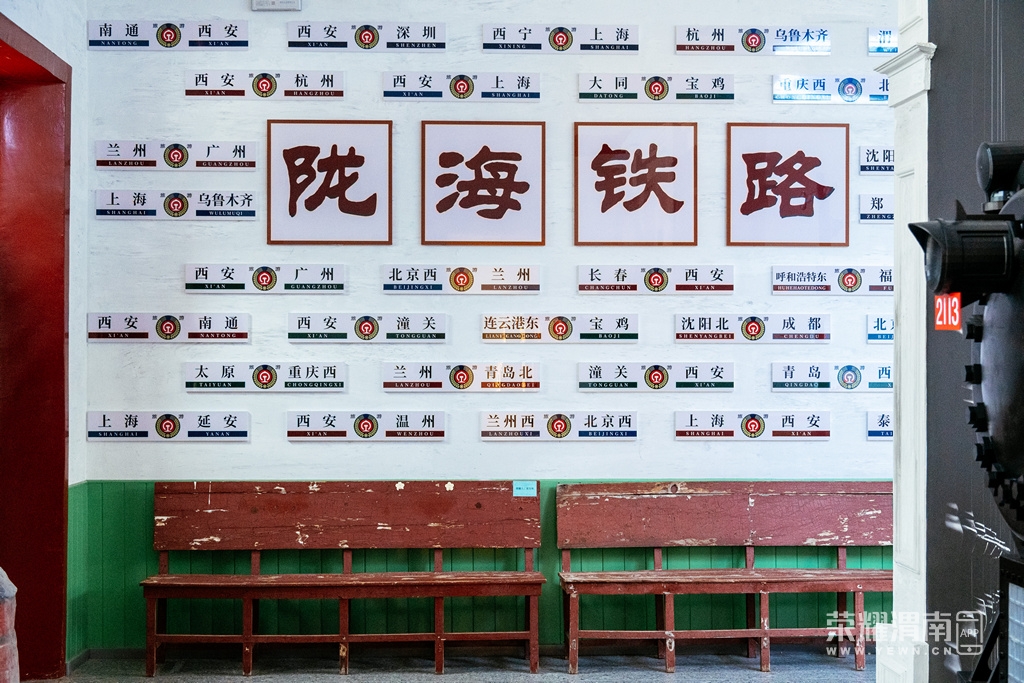 南通 西安
NANTONG XI'AN
西安 深圳
XI'AN SHENZHEN
西宁 上海
XINING SHANGHAI
杭州 乌鲁木齐
HANGZHOU
渭
西安 杭州
XI'AN HANGZHOU
西安 上海
XI'AN SHANGHAI
大同 宝鸡
DATONG BAOJI
重庆西 北
兰州 广州
LANZHOU GUANGZHOU
陇海铁路
沈阳
上海 乌鲁木齐
SHANGHAI WULUMUQI
郑
西安 广州
XI'AN GUANGZHOU
北京西 兰州
BEIJINGXI LANZHOU
长春 西安
CHANGCHUN XI'AN
呼和浩特东 福
HUHEHAOTEDONG FU
西安 南通
XI'AN NANTONG
西安 潼关
XI'AN TONGGUAN
连云港东 宝鸡
LIANYUNGANGDONG BAOJI
沈阳北 成都
SHENYANGBEI CHENGDU
北京
太原 重庆西
TAIYUAN CHONGQINGXI
兰州 青岛北
LANZHOU QINGDAOBEI
潼关 西安
TONGGUAN XI'AN
青岛 西
QINGDAO XI
上海 延安
SHANGHAI YANAN
西安 温州
XI'AN WENZHOU
兰州西 北京西
LANZHOUXI BEIJINGXI
上海 西安
SHANGHAI XI'AN
泰
TAI
2113
荣耀渭南 APP
WWW.YEWN.CN